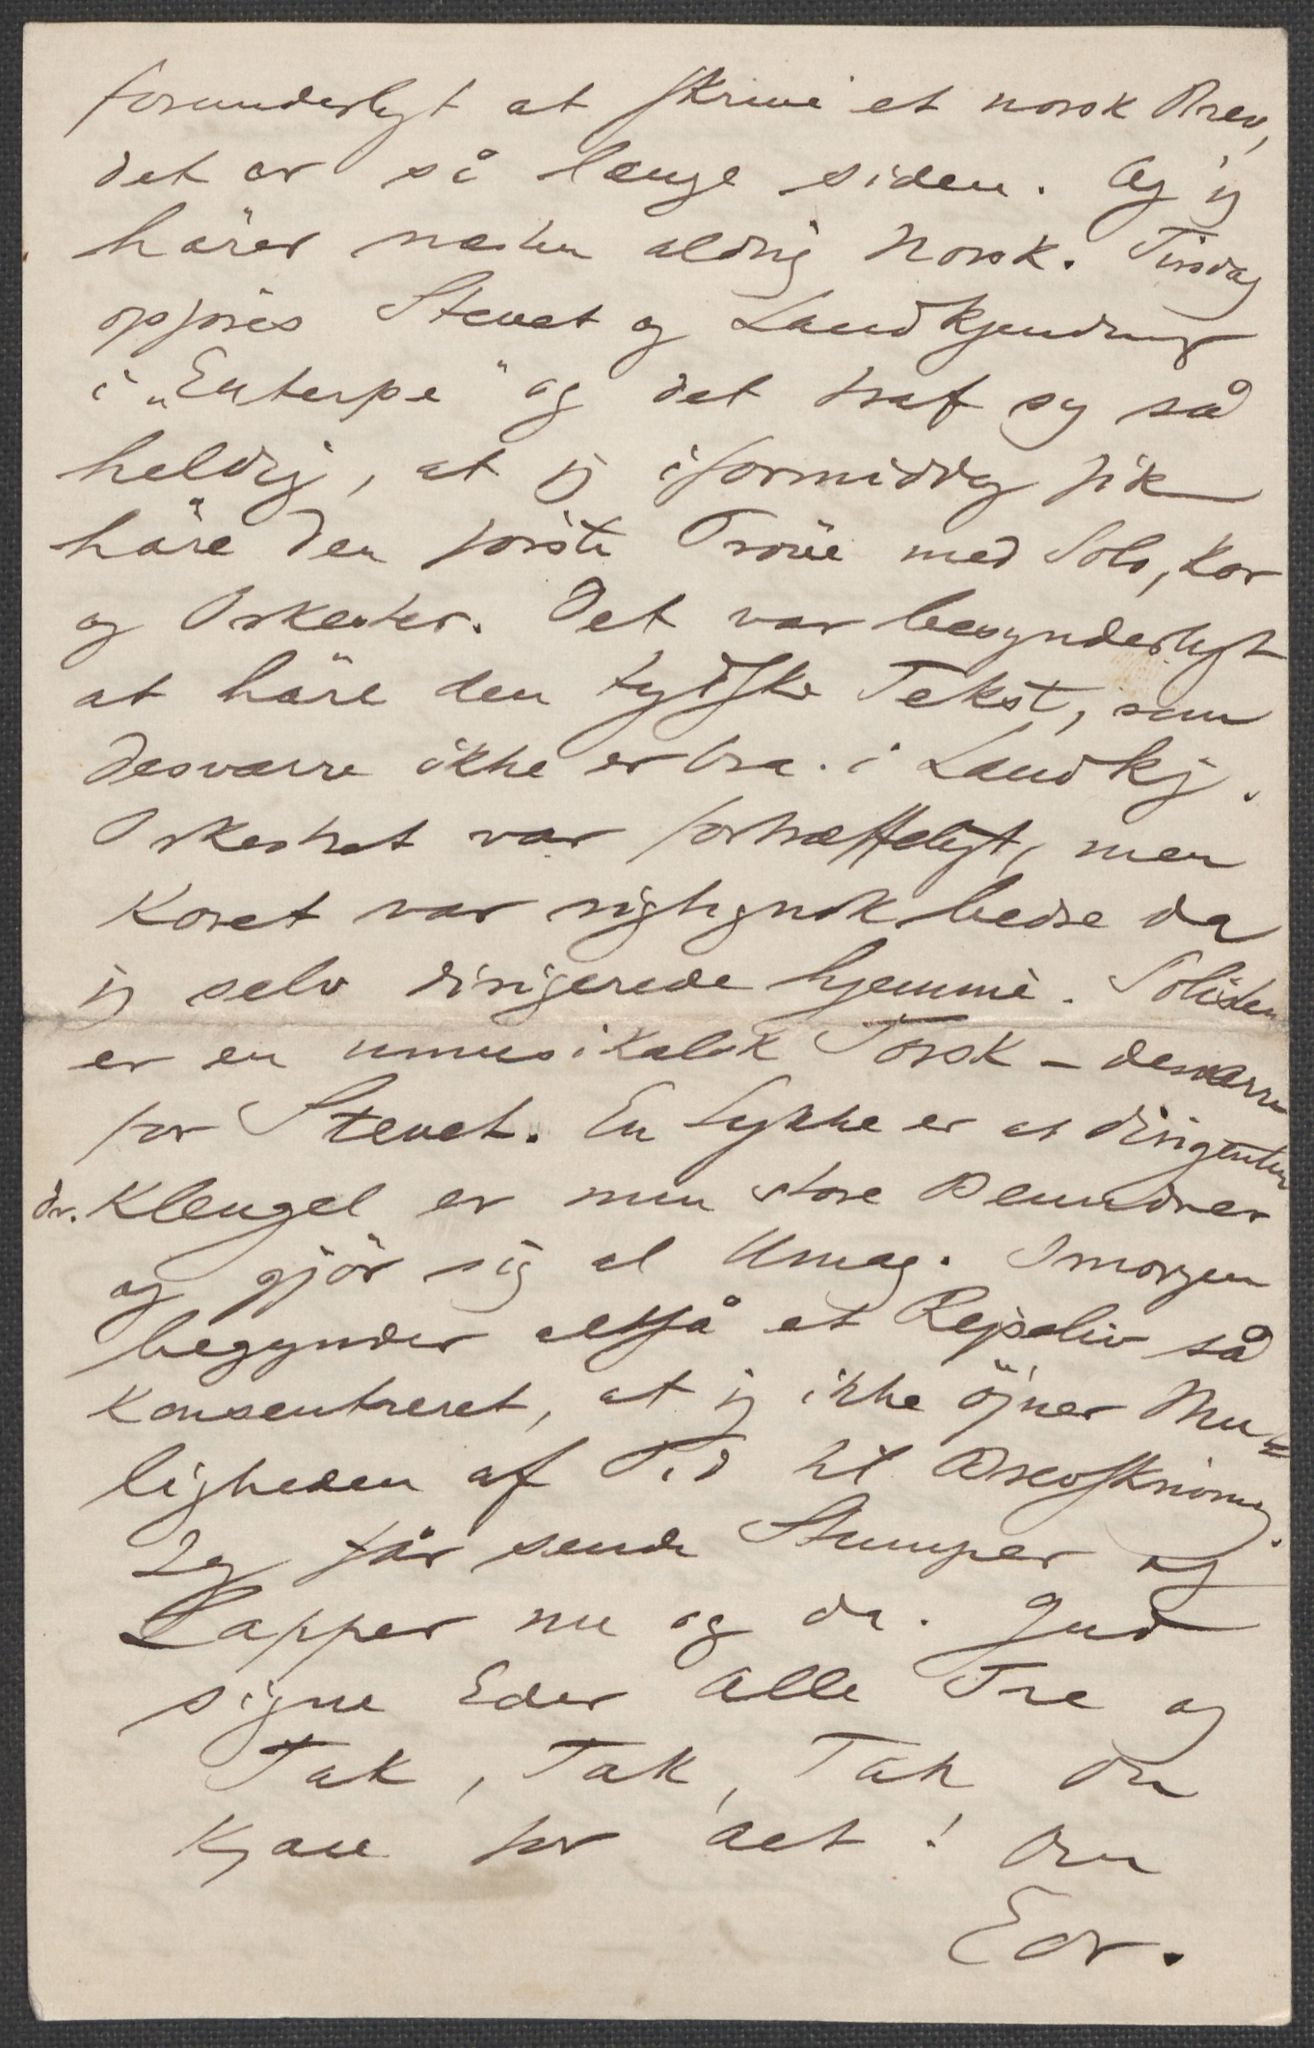 forunderligt at skrive et norsk Brev,
det er så længe siden. Og jeg
hører næsten aldrig Norsk. Tirsdag
opføres Stevet og Landkjending
i „Euterpe“ og det traf sig så
heldig, at jeg iformiddag fik
høre den første Prøve med Solo, Kor
og Orkester. Det var besynderligt
at høre den tydske Tekst, som
desværre ikke er bra i Landkj.
Orkestret var fortræffeligt, men
Koret var rigtignok bedre da
jeg selv dirigerede hjemme. Solisten
er en umusikalsk Torsk – desværre
for Stevet. En Lykke er at Dirigenten
Dr. Klengel er min store Beundrer
og gjör sig al Umag. Imorgen
begynder altså et Rejseliv så
konsentreret, at jeg ikke öjner Mu=
ligheden af Tid til Brevskrivning.
Jeg får sende Stumper og
Lapper nu og da. Gud
signe Eder alle Tre og
Tak, Tak, Tak du
Kjære for alt! Din
Edv.